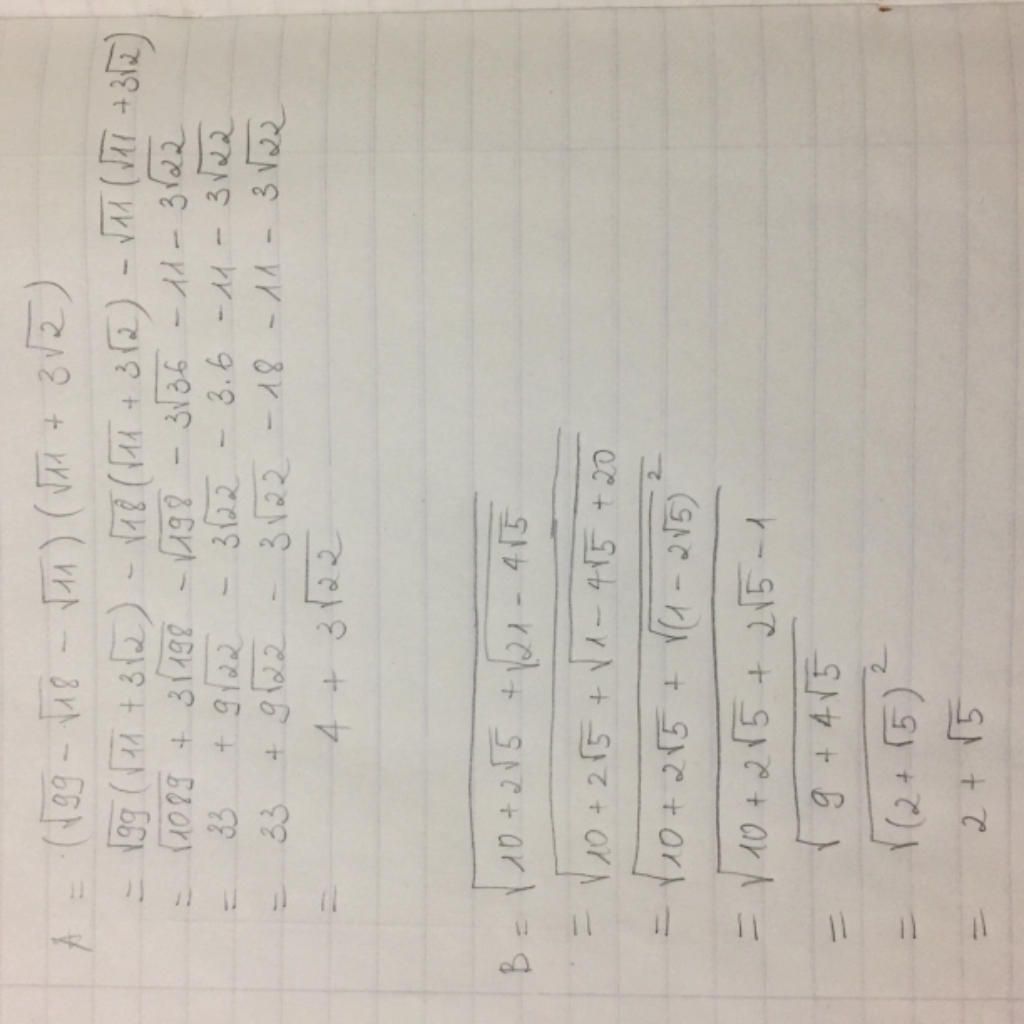 A = (√99 - √18 - √11)(√11 + 3√2)
= √99(√11 + 3√2) - √18(√11 + 3√2) - √11(√11 + 3√2)
= √1089 + 3√198 - √198 - 3√36 - 11 - 3√22
= 33 + 9√22 - 3√22 - 3.6 - 11 - 3√22
= 33 + 9√22 - 3√22 - 18 - 11 - 3√22
= 4 + 3√22
B = √(10 + 2√5 + √(21 - 4√5))
= √(10 + 2√5 + √(1 - 4√5 + 20))
= √(10 + 2√5 + √((1 - 2√5)²))
= √(10 + 2√5 + 2√5 - 1)
= √(9 + 4√5)
= √((2 + √5)²)
= 2 + √5